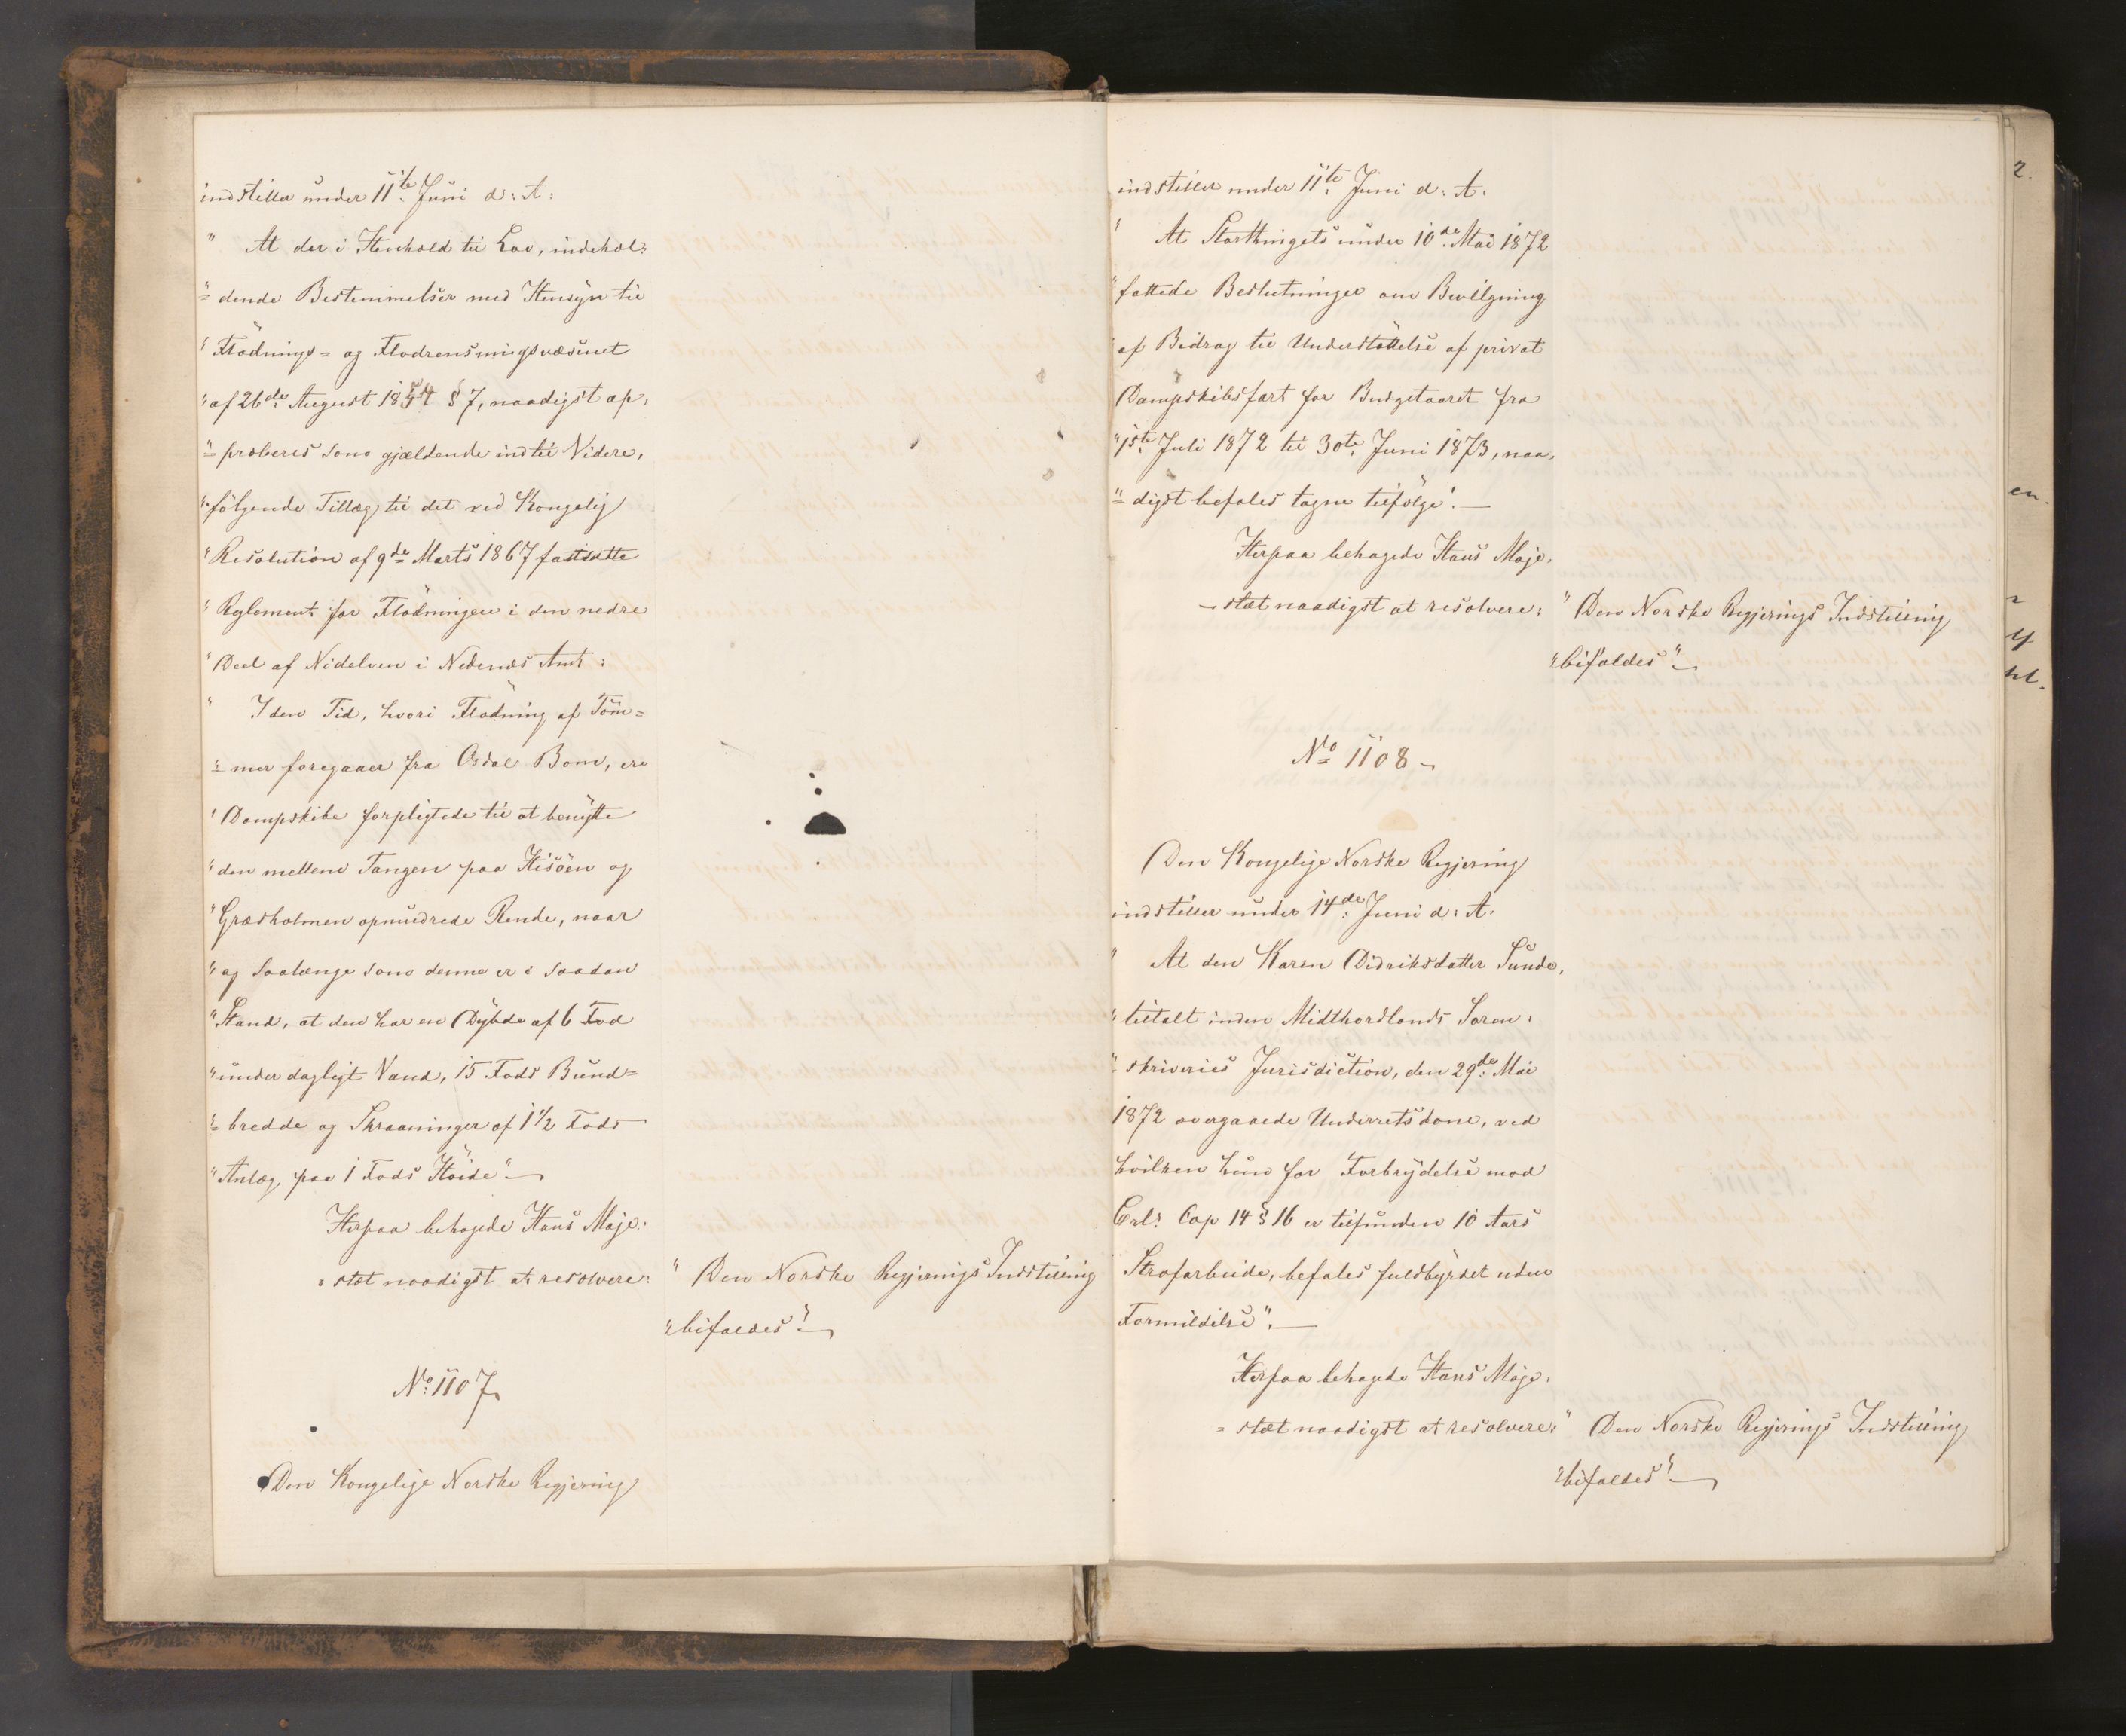 indstiller under 11te Juni d: A:
" At der i Henhold til Lov, indehol:
"= dende Bestemmelser med Hensyn til
" Flödnings= og Flodrensningsvæsenet
" af 26de August 1854 § 7, naadigst ap:
"= proberes som gjældende indtil Videre,
" følgende Tillæg til det ved Kongelig
" Resolution af 9de Marts 1867 fastsatte
" Reglement for Flödningen i den nedre
" Deel af Nidelven i Nedenæs Amt:
" I den Tid, hvori Flödning af Töm=
"= mer foregaaer fra Osdal Bom, ere
" Dampskibe forpligtede til at benytte
" den mellem Tangen paa Hisöen og
" Græsholmen opmudrede Rende, naar
" og saalænge som denne er i saadan
" Stand, at den har en Dybde af 6 Fod
" under dagligt Vand, 15 Fods Bund=
"= bredde og Skraaninger af 1 1/2 Fods
" Anlæg paa 1 Fods Höide". —
Herpaa behagede Hans Maje:
= stæt naadigst at resolvere: " Den Norske Regjerings Indstilling
" bifaldes". —
No: 1107.
Den Kongelige Norske Regjering
indstiller under 11te Juni d: A.
" At Storthingets under 10de Mai 1872
" fattede Beslutninger om Bevilgning
" af Bidrag til Understöttelse af privat
Dampskibsfart for Budgetaaret fra
" 1ste Juli 1872 til 30te Juni 1873, naa,
"= digst befales tagne tilfölge". —
Herpaa behagede Hans Maje,
= stæt naadigst at resolvere: " Den Norske Regjerings Indstilling
" bifaldes". —
No 1108 —
Den Kongelige Norske Regjering
indstiller under 14de Juni d: A.
" At den Karen Didriksdatter Sunde,
" tiltalt inden Midthordlands Soren:
"= skriveries Jurisdiction, den 29de Mai
1872 overgaaede Underretsdom, ved
hvilken hun for Forbrydelse mod
Crl: Cap 14 § 16 er tilfunden 10 Aars
Strafarbeide, befales fuldbyrdet uden
Formildelse". —
Herpaa behagede Hans Maje,
= stæt naadigst at resolvere: " Den Norske Regjerings Indstilling
" bifaldes". —
2.
en.